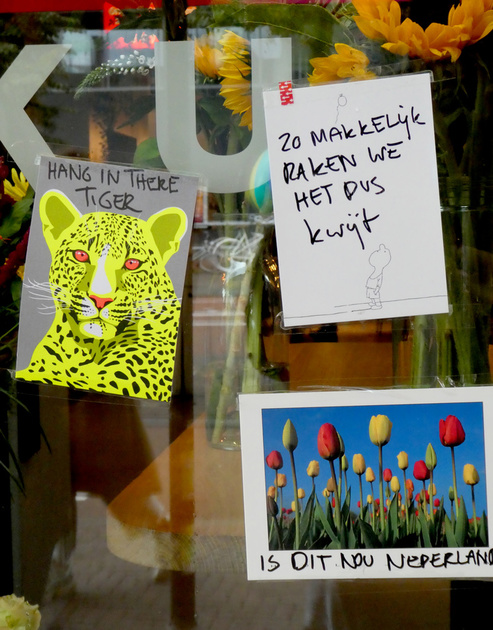 KU
HANG IN THERE
TIGER
ZO MAKKELIJK
RAKEN WE
HET DUS
kwijt
IS DIT NOU NEDERLAND